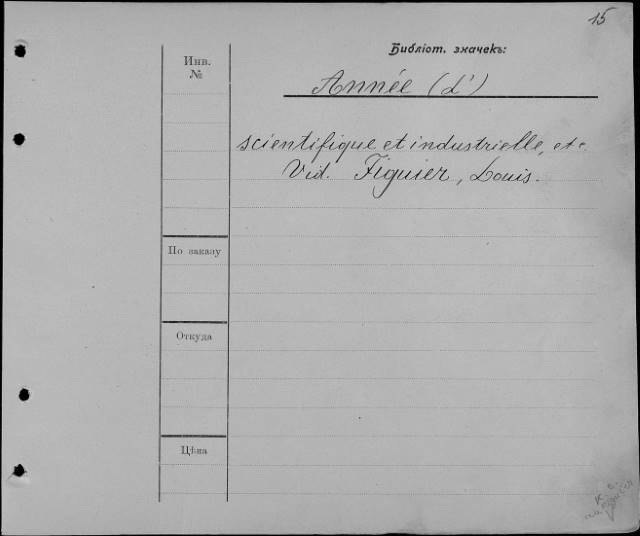 15
Библіот. значекъ:
Инв.
№
Année (L')
scientifique et industrielle, etc.
Vid. Figuier, Louis.
По заказу
Откуда
Цѣна